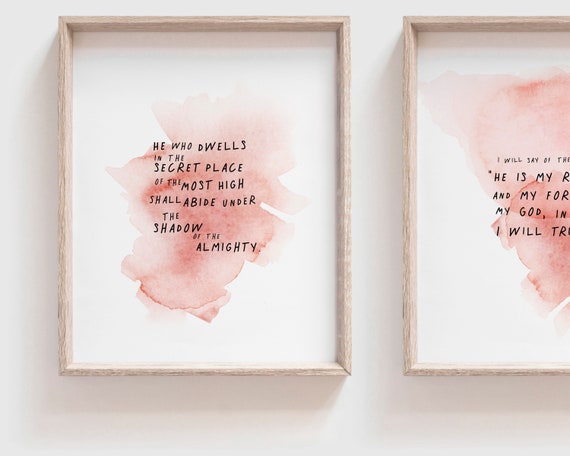 HE WHO DWELLS
IN THE
SECRET PLACE
OF THE MOST HIGH
SHALL ABIDE UNDER
THE
SHADOW
OF THE
ALMIGHTY.
I WILL SAY OF THE
"HE IS MY R
AND MY FOR
MY GOD, IN
I WILL TRU